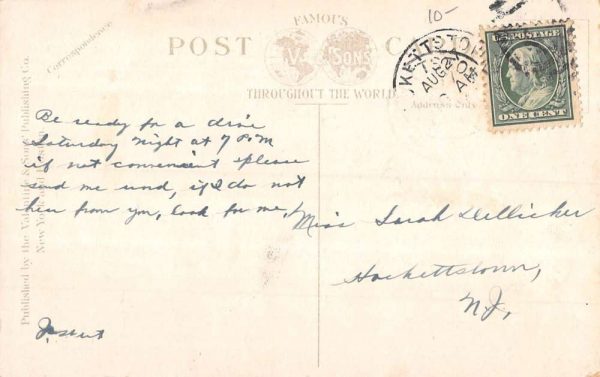 10-
FAMOUS
POST CA
V & SONS
THROUGHOUT THE WORLD
Correspondence
Address Only
KETTSTOWN
AUG
U.S. POSTAGE
ONE CENT
Published by the Valentine & Sons Publishing Co.
New York
Be ready for a drive
Saturday night at 7 P.M
if not convenient please
send me word, if I do not
hear from you, look for me,
Miss Sarah Dellicker
Hackettstown,
N.J.